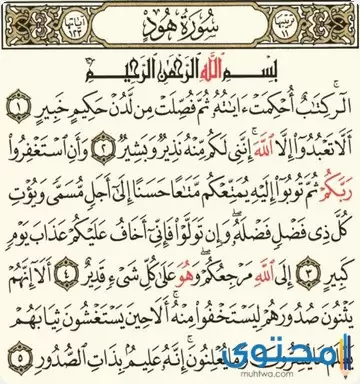 ترتيبها ١١ سُورَةُ هُودٍ آياتها ١٢٣
بِسْمِ اللَّهِ الرَّحْمَٰنِ الرَّحِيمِ
الٓر كِتَٰبٌ أُحْكِمَتْ ءَايَٰتُهُۥ ثُمَّ فُصِّلَتْ مِن لَّدُنْ حَكِيمٍ خَبِيرٍ ١
أَلَّا تَعْبُدُوٓا۟ إِلَّا ٱللَّهَ إِنَّنِى لَكُم مِّنْهُ نَذِيرٌ وَبَشِيرٌ ٢ وَأَنِ ٱسْتَغْفِرُوا۟
رَبَّكُمْ ثُمَّ تُوبُوٓا۟ إِلَيْهِ يُمَتِّعْكُم مَّتَٰعًا حَسَنًا إِلَىٰٓ أَجَلٍ مُّسَمًّى وَيُؤْتِ
كُلَّ ذِى فَضْلٍ فَضْلَهُۥ وَإِن تَوَلَّوْا۟ فَإِنِّىٓ أَخَافُ عَلَيْكُمْ عَذَابَ يَوْمٍ
كَبِيرٍ ٣ إِلَى ٱللَّهِ مَرْجِعُكُمْ وَهُوَ عَلَىٰ كُلِّ شَىْءٍ قَدِيرٌ ٤ أَلَآ إِنَّهُمْ
يَثْنُونَ صُدُورَهُمْ لِيَسْتَخْفُوا۟ مِنْهُ أَلَا حِينَ يَسْتَغْشُونَ ثِيَابَهُمْ
يُعْلِنُونَ إِنَّهُۥ عَلِيمٌۢ بِذَاتِ ٱلصُّدُورِ ٥
محتوى
muhtwa.com